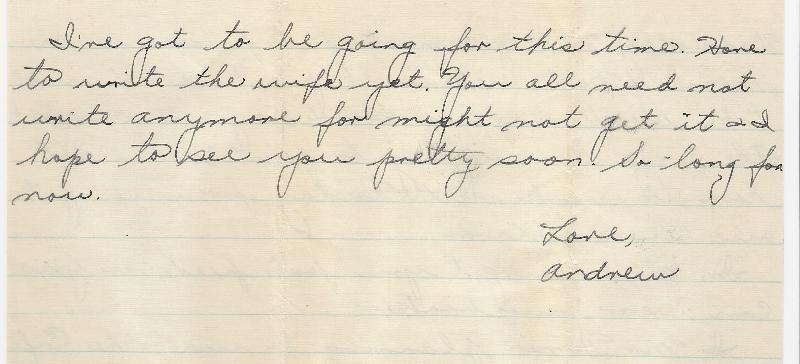 I've got to be going for this time. Have
to write the wife yet. You all need not
write anymore for might not get it & I
hope to see you pretty soon. So-long for
now.
Love,
Andrew